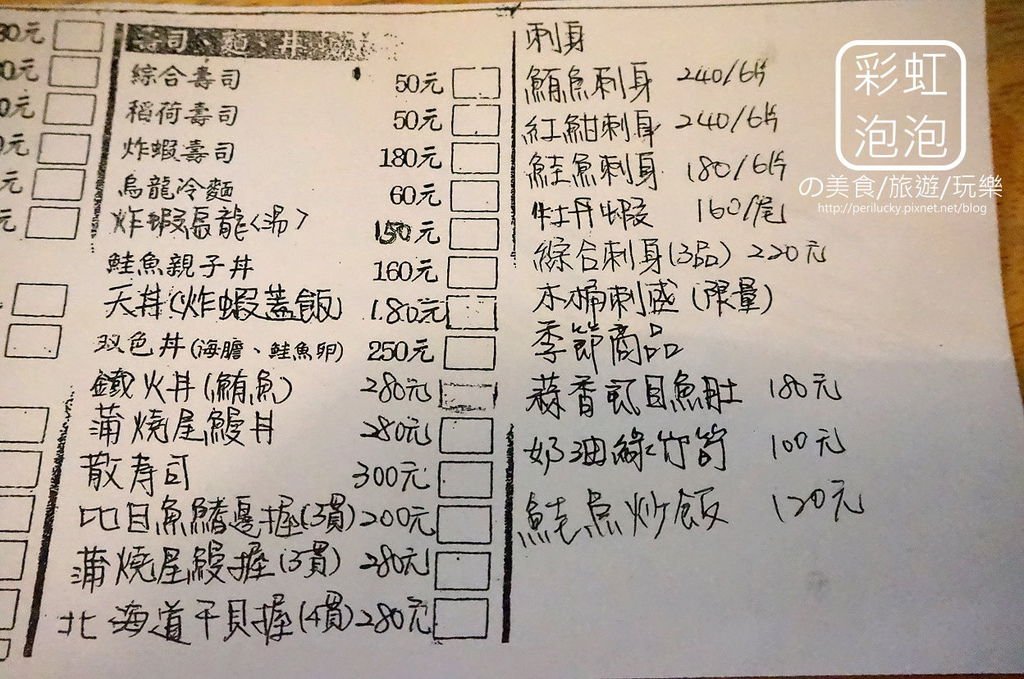 30元
0元
0元
0元
元
元
壽司、麵、丼
綜合壽司 50元
稻荷壽司 50元
炸蝦壽司 180元
烏龍冷麵 60元
炸蝦烏龍<湯> 150元
鮭魚親子丼 160元
天丼(炸蝦蓋飯) 180元
双色丼(海膽、鮭魚卵) 250元
鐵火丼(鮪魚) 280元
蒲燒屋鰻丼 280元
散寿司 300元
比目魚鰭邊握(3貫) 200元
蒲燒屋鰻握(3貫) 280元
北海道干貝握(4貫) 280元
刺身
鮪魚刺身 240/6片
紅魽刺身 240/6片
鮭魚刺身 180/6片
牡丹蝦 160/尾
綜合刺身(3品) 220元
木桶刺盛(限量)
季節商品
蒜香虱目魚肚 180元
奶油綠竹筍 100元
鮭魚炒飯 120元
彩虹
泡泡
の美食/旅遊/玩樂
http://perilucky.pixnet.net/blog